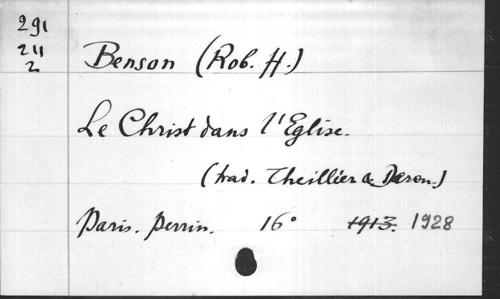 291
211
2
Benson (Rob. H.)
Le Christ dans l'Eglise.
(trad. Theillier de
Paris. Perrin. 16° 1913. 1928